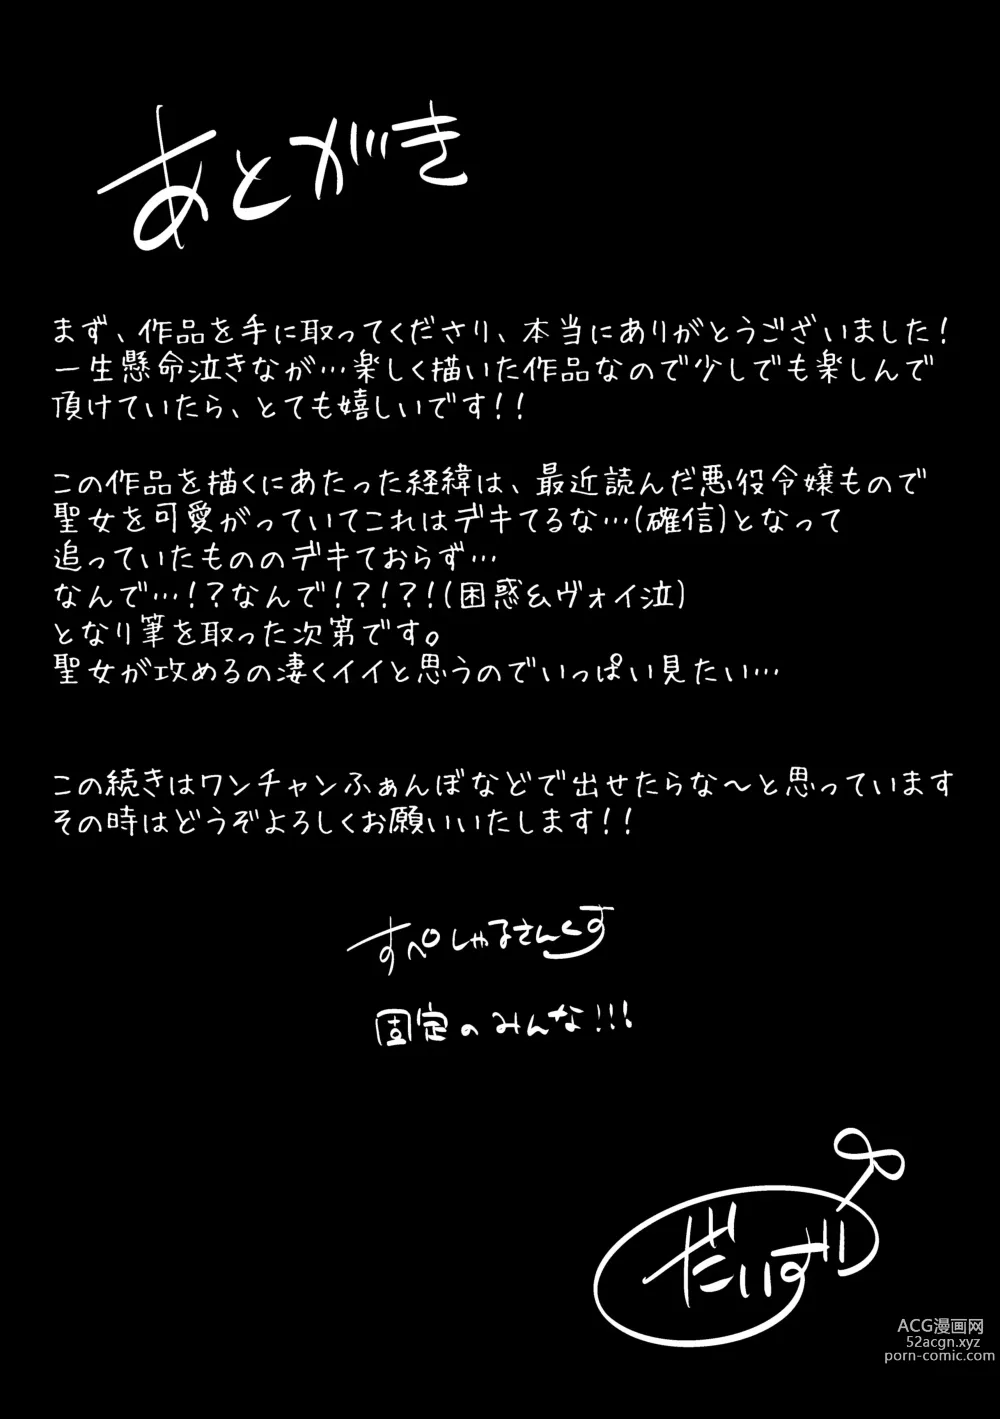 あとがき
まず、作品を手に取ってくださり、本当にありがとうございました！
一生懸命泣きなが…楽しく描いた作品なので少しでも楽しんで
頂けていたら、とても嬉しいです！！
この作品を描くにあたった経緯は、最近読んだ悪役令嬢もので
聖女を可愛がっていてこれはデキてるな…(確信)となって
追っていたもののデキておらず…
なんで…！？なんで！？！？！(困惑&ヴォイ泣)
となり筆を取った次第です。
聖女が攻めるの凄くイイと思うのでいっぱい見たい…
この続きはワンチャンふぁんぼなどで出せたらな～と思っています
その時はどうぞよろしくお願いいたします！！
すぺしゃるさんくす
固定のみんな!!!
だいず
ACG漫画网
52acgn.xyz
porn-comic.com